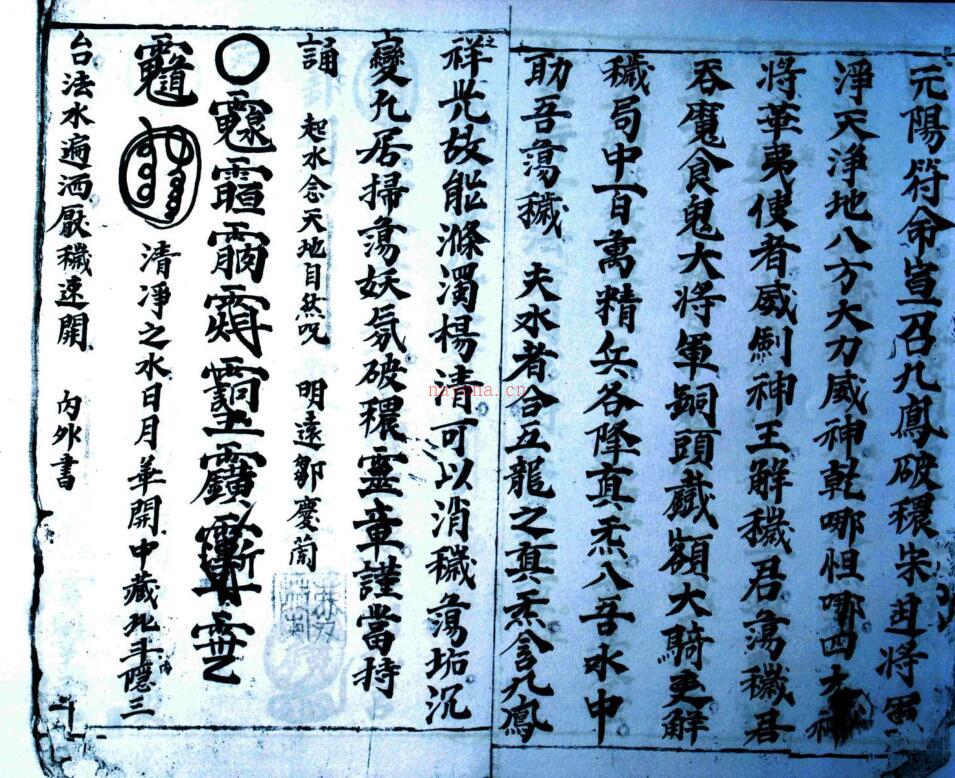 元陽符命宣召九鳳破穢宋迁將軍
淨天淨地八方大力威神乾哪怛哪四大神
將華夷使者威劍神王解穢君蕩穢君
吞魔食鬼大將軍銅頭鐵額大騎吏解
穢局中百萬精兵各降真炁入吾水中
助吾蕩穢 夫水者合五龍之真炁含九鳳
之祥光故能滌濁楊清可以消穢蕩垢沉
變凡居掃蕩妖氛破穢靈章謹當持
誦 起水念天地自然咒 明遠鄒慶蘭
清凈之水日月華開中藏北斗隱三
台法水遍洒厭穢速開 內外書
nayona.cn